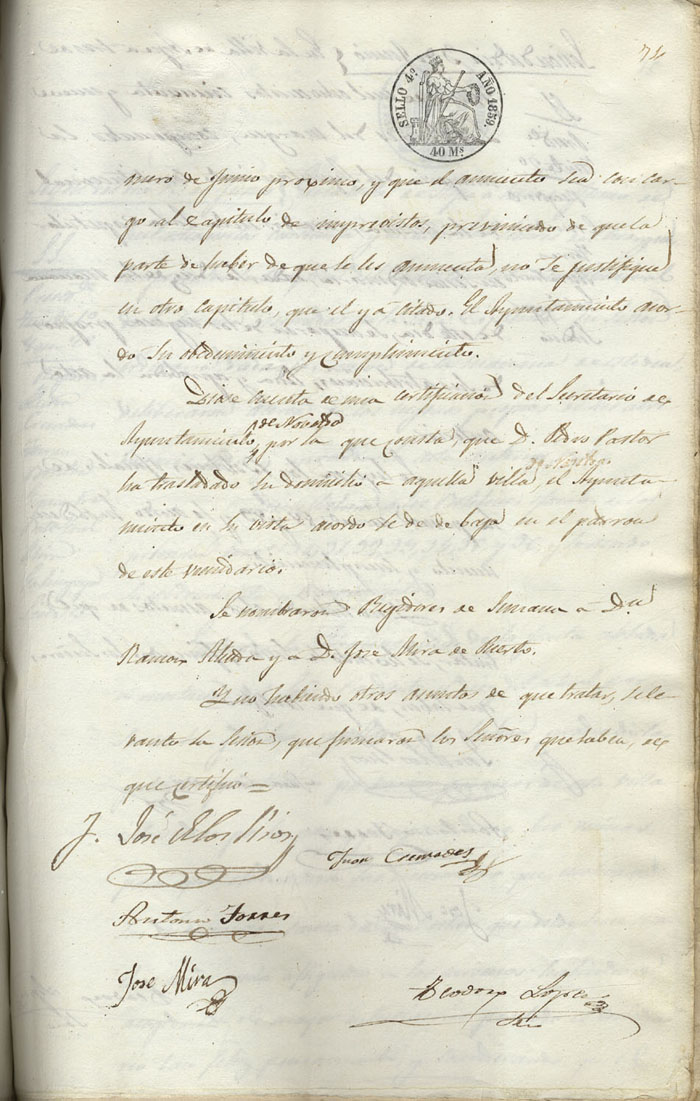 74
SELLO 4º AÑO 1859.
40 Ms.
mero de Junio proximo, y que el aumento sea con car-
go al Capitulo de imprevistos, proviniendo de que la
parte de haber de que se les aumenta, no se justifique
en otro capitulo, que el ya citado. El Ayuntamiento acor-
do su obedecimiento y cumplimiento.
Diose cuenta de una certificacion del Secretario de
Ayuntamiento de Novelda, por la que consta, que D. Pedro Pastor
ha trasladado su domicilio a aquella villa, el Ayunta-
miento en su vista acordo se de de baja en el padron
de este vecindario.
Se nombraron Regidores de Semana a Dn
Ramon y a D. Jose Mira de Puerto.
Y no habiendo otros asuntos de que tratar, se le-
vanto la Sesion, que firmaron los Señores que saben, de
que certifico =
J. José de los Rios
Juan
Antonio Torres
Jose Mira
Teodoro Lopez
Srio